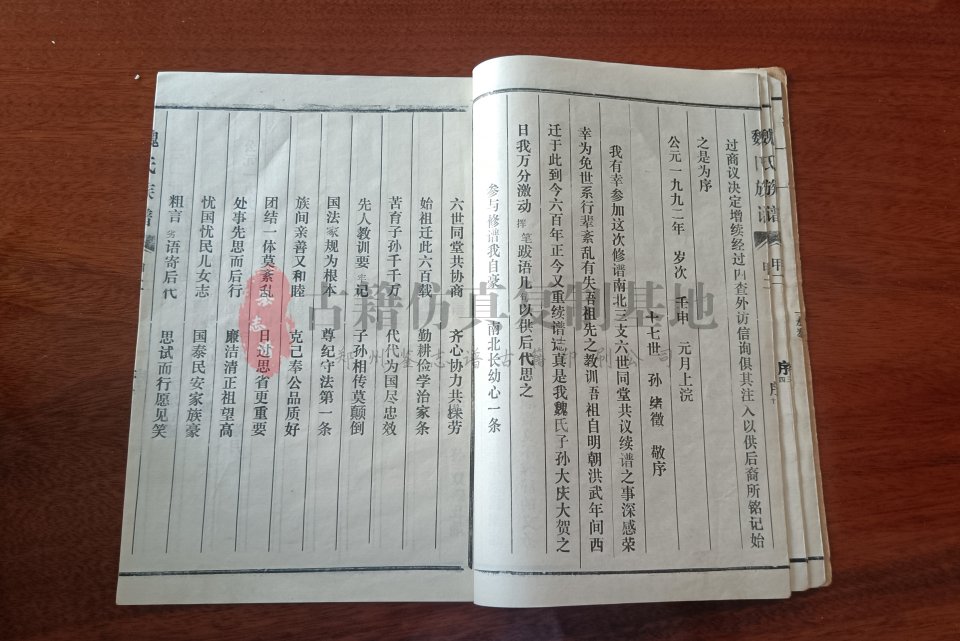 过商议决定增续经过内查外访信询俱其注入以供后裔所铭记始
之是为序
公元一九九二年 岁次 壬申 元月上浣
十七世 孙 绪徵 敬序
我有幸参加这次修谱南北三支六世同堂共议续谱之事深感荣
幸为免世系行辈紊乱有失吾祖先之教训吾祖自明朝洪武年间西
迁于此到今六百年正今又重续谱志真是我魏氏子孙大庆大贺之
日我万分激动 挥笔 跋语几句以供后代思之
参与修谱我自豪 南北长幼心一条
六世同堂共协商 齐心协力共操劳
始祖迁此六百载 勤耕俭学治家条
苦育子孙千千万 代代为国尽忠效
先人教训要牢记 子孙相传莫颠倒
国法家规为根本 尊纪守法第一条
族间亲善又和睦 克己奉公品质好
团结一体莫紊乱 日过思省更重要
处事先思而后行 廉洁清正祖望高
忧国忧民儿女志 国泰民安家族豪
粗言劣语寄后代 思试而行愿见笑
魏氏族谱
魏氏族谱 甲一
序 四
古籍仿真复制基地